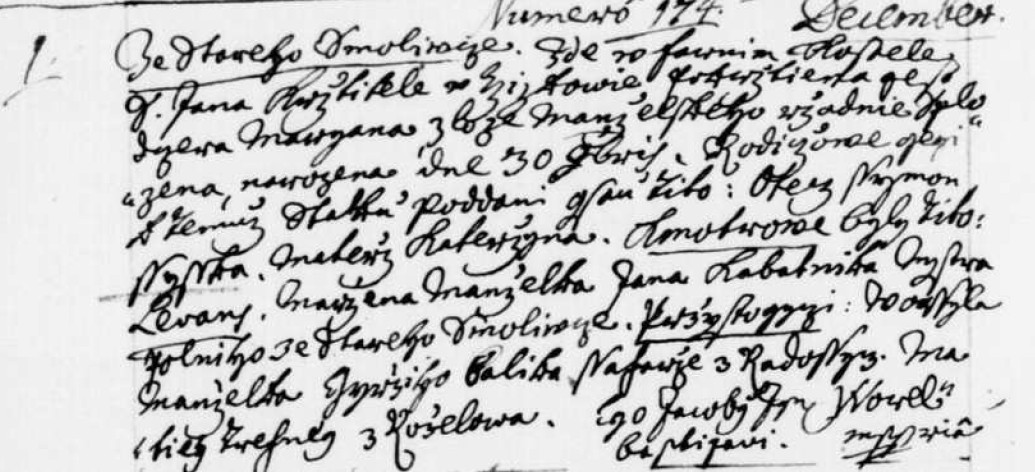 Numero 174. December.
1. Ze Stareho Smoliwcze. Zde w farnim Kostele
S. Jana Krztitele w Kijtowie pokrztiena gest
dczera Maryana z loze manzelskeho rzadnie splo
zena, narozena dne 30 9bris. Rodiczowe gegi
k temuz Statku poddani gsau tito: Otecz Ssymon
Ssysska. Materz Katerzyna. Kmotrowe byly tito:
Levans. Marzena Manzelka Jana Kabatnika Mystra
polniho ze Stareho Smoliwcze. Przystogyczi: Worssyla
Manzelka Gyrziho Kalika Ssafarze z Radossycz. Ma
tieg z Rozelowa. Ego Jacobus Wowes
baptizavi.